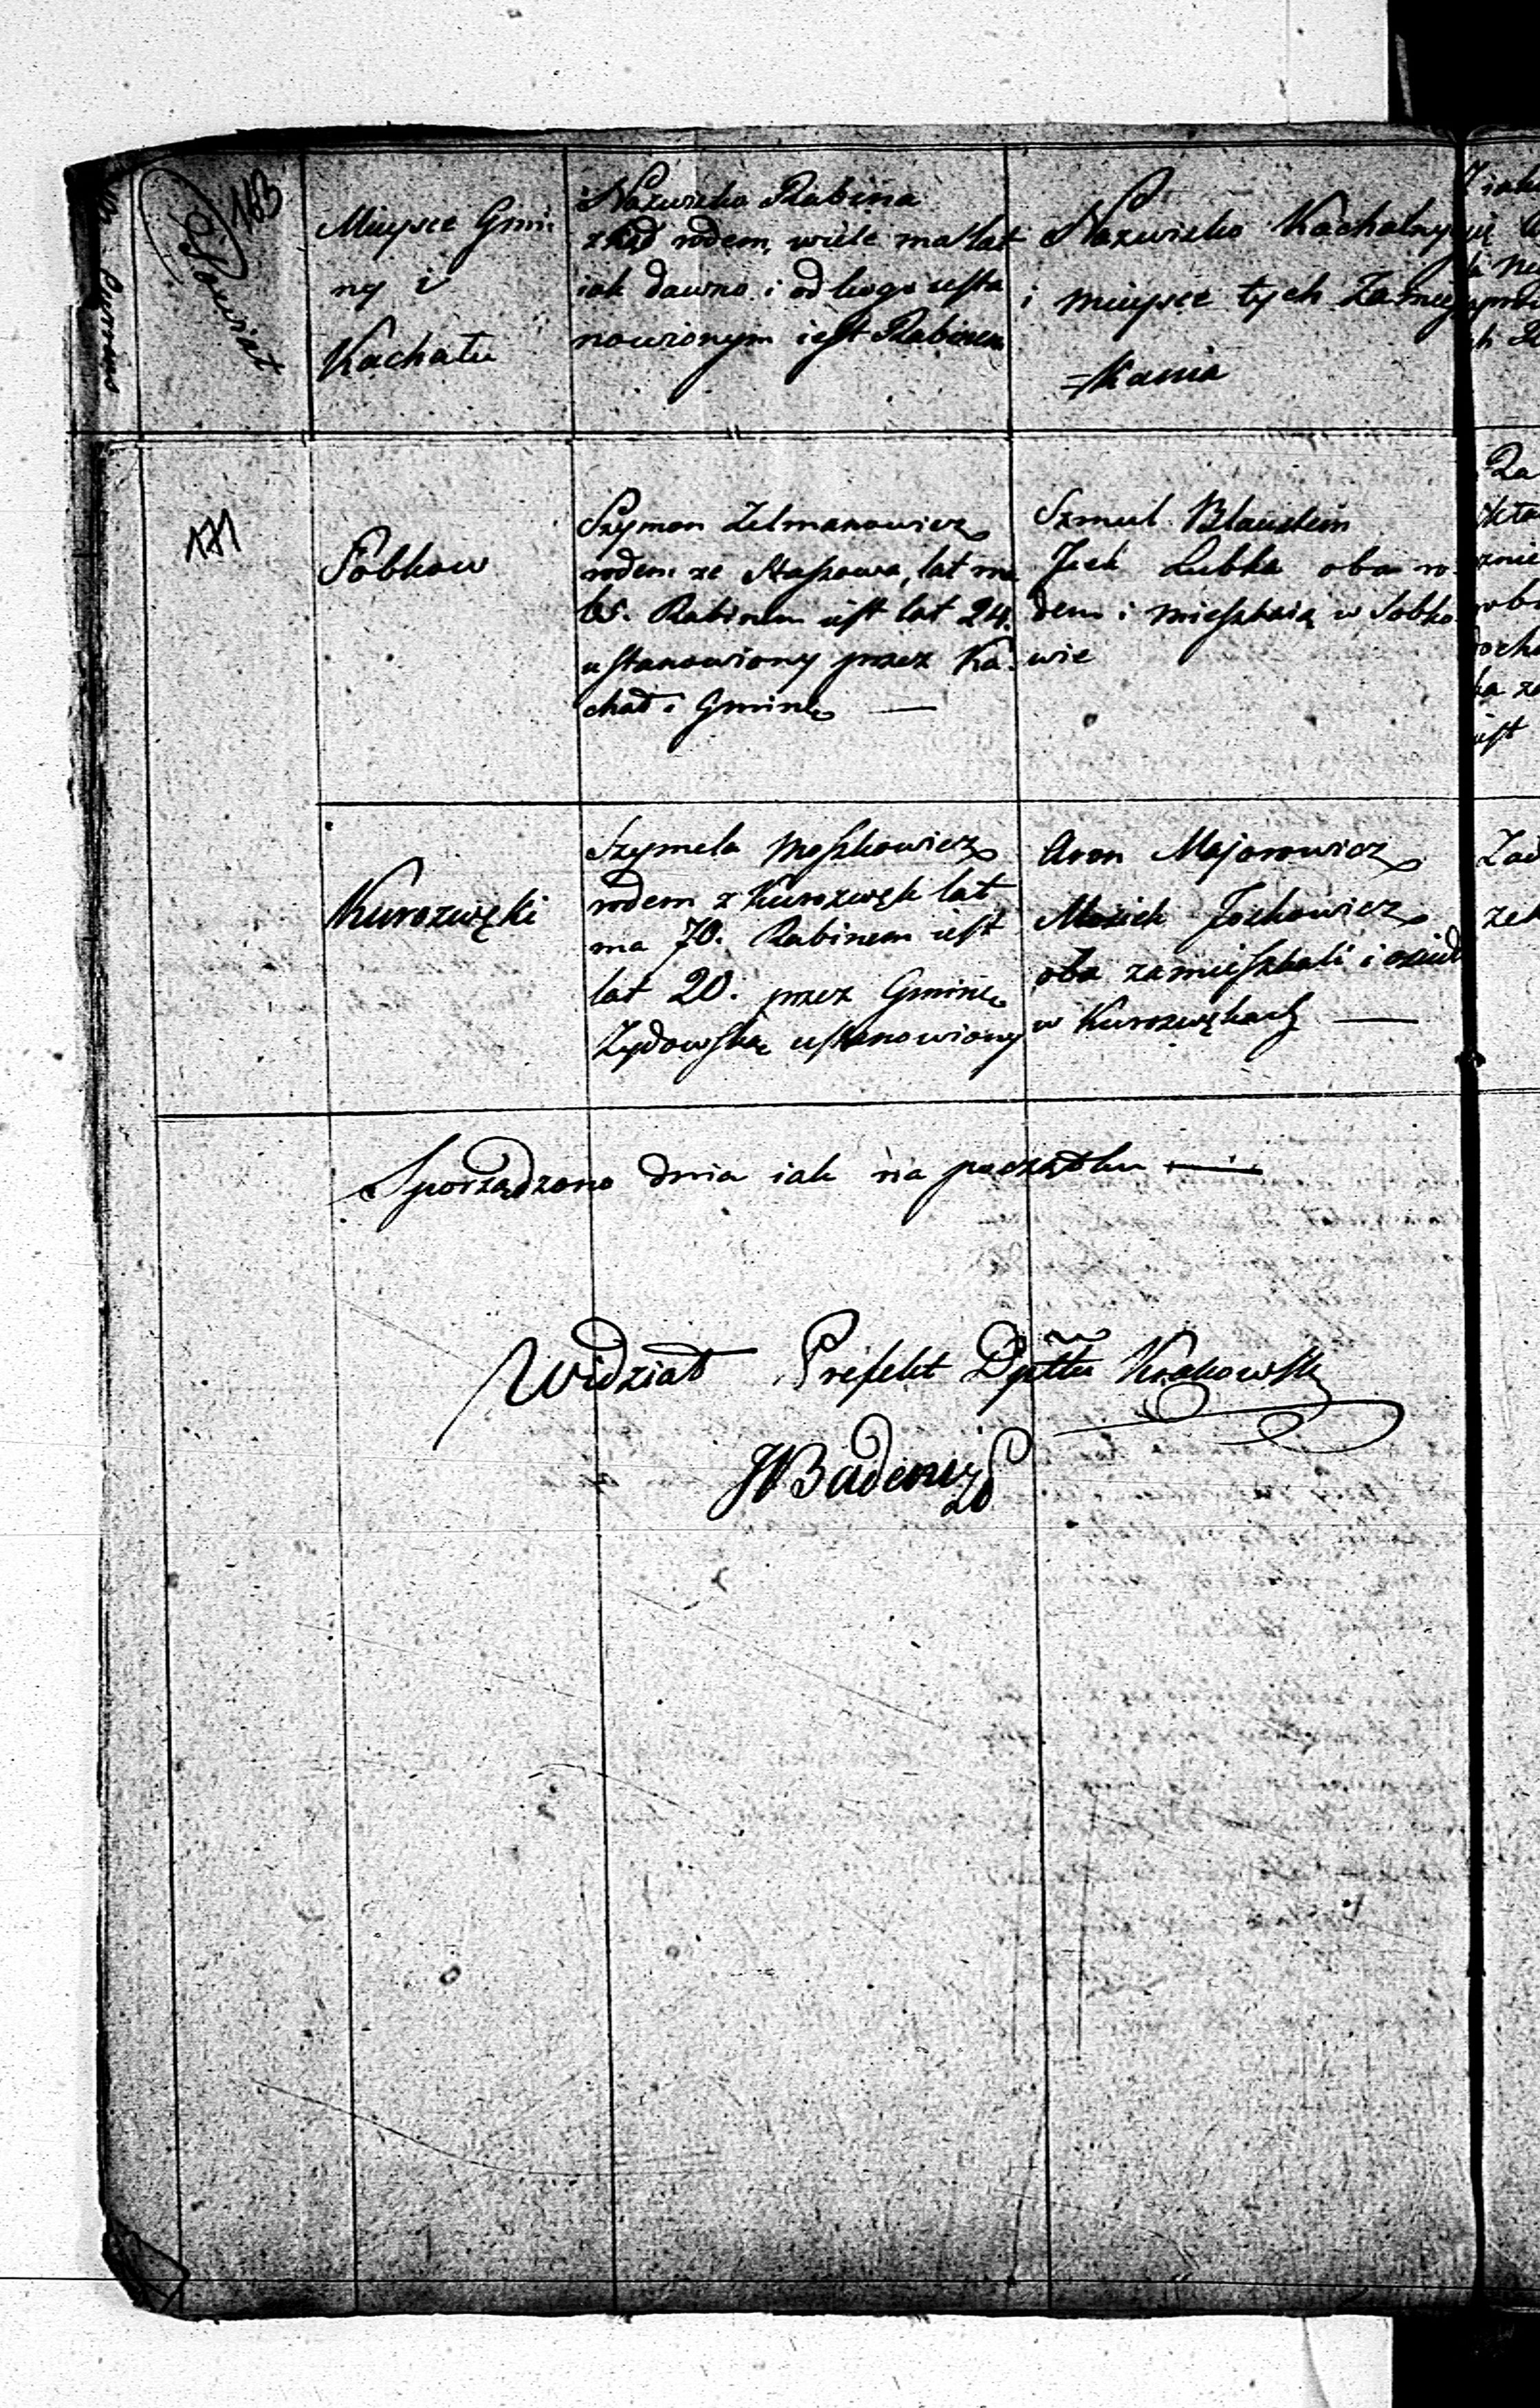 183
Powiat
Numero
Mieysce Gmi:
ny i
Kachału
Nazwisko Rabina
zkąd rodem, wiele ma lat
iak dawno i od kogo usta
nowionym iest Rabinem
Nazwisko Kachalnych
i mieysce tych Zamiesz
=kania
171
Sobkow
Szymon Zelmanowicz
rodem ze Staszowa, lat ma
65. Rabinem iest lat 24.
ustanowiony przez Ka:
chał i Gminę —
Szmul Blaustein
Jcek Lubka oba ro:
dem i mieszkaią w Sobko:
wie
Kurozwęki
Szymela Moszkowicz
rodem z Kurozwęk lat
ma 70. Rabinem iest
lat 20. przez Gminę
Zydowską ustanowiony
Aron Majorowicz
Mosiek Joskowicz
oba zamieszkali i osiedli
w Kurozwękach —
Sporządzono dnia iak na początku —
Widział Prefekt Dpttu Krakowsk
Badeni